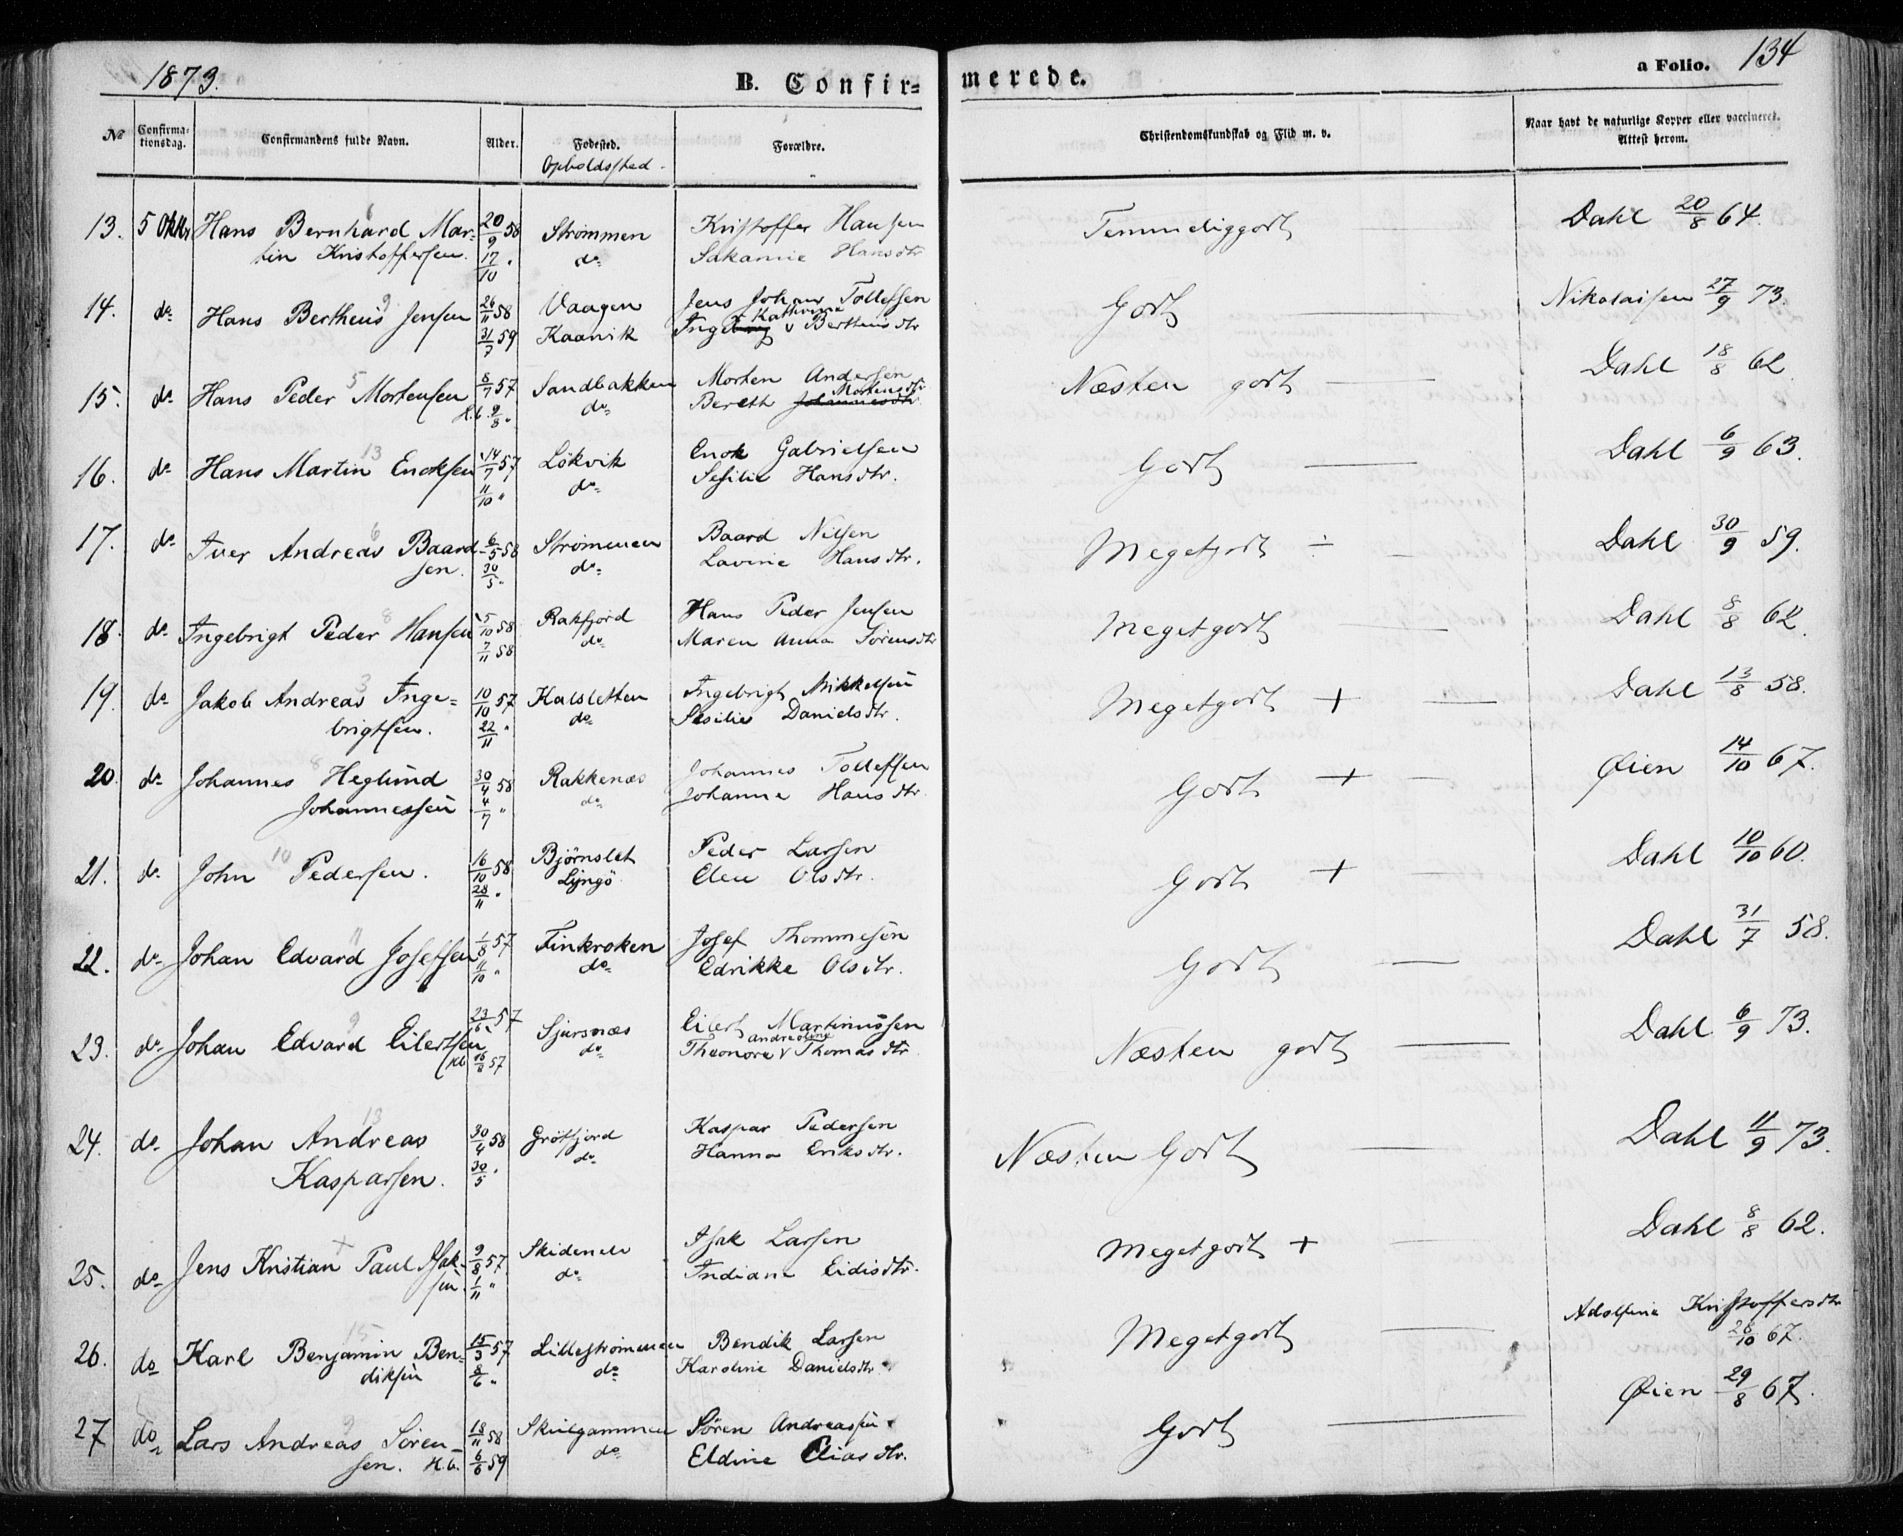 1873.
B. Confir- merede.
a Folio. 134
No
Confirmationsdag.
Confirmandens fulde Navn.
Alder.
Fødested.
Opholdssted.
Forældre.
Christendomskundskab og Flid m. v.
Naar havt de naturlige Kopper eller vaccineret.
Attest herom.
13. 5 Oktbr Hans Bernhard Mar- 6 20/9 58 Strømmen Kristoffer Hansen Temmeliggodt Dahl 20/8 64.
tin Kristoffersen. 17/10 " do- Sakarine Hansdtr
14. do- Hans Bertheus Jensen 9 26/11 58 Vaagen Jens Johan Tollefsen Godt Nikolaisen 27/9 73.
31/7 59 Kaanik Ingeborg Kathrine v Bertheusdtr
15. do- Hans Peder Mortensen 5 8/7 57 Sandbakken Morten Andersen Næsten godt Dahl 18/8 62
H.b. 9/8 " do- Bereth Johannesdtr Mortensdtr
16. do- Hans Martin Enoksen 13 14/7 57 Løkvik Enok Gabrielsen Godt Dahl 6/9 63.
11/10 " do- Sesilie Hansdtr.
17. do- Iver Andreas Baard- 6 6/5 58 Strømmen Baard Nilsen Megetgodt ÷ Dahl 30/9 59.
sen. 30/5 " do- Lavine Hansdtr.
18. do- Ingebrigt Peder Hansen 8 5/10 58 Rakfjord Hans Peder Jensen Megetgodt Dahl 8/8 62.
7/11 58 do- Maren Anna Sørensdtr
19. do- Jakob Andreas Inge- 3 10/10 57 Kalsletten Ingebrigt Mikkelsen Megetgodt + Dahl 13/8 58.
brigtsen. 22/11 " do- Sesilie Danielsdtr.
20. do- Johannes Heglund 8 30/4 58 Rakkenæs Johannes Tollefsen Godt + Øien 14/10 67.
Johannessen 4/7 " do- Johanna Hansdtr
21. do- John Pedersen. 10 16/10 58 Bjørnslet Peder Larsen Godt + Dahl 10/10 60.
28/11 " Lyngö Elen Olsdtr.
22. do- Johan Edvard Josefsen 11 1/8 57 Finkroken Josef Thommesen Godt Dahl 31/7 58.
11/10 " do- Edrikke Olsdtr.
23. do- Johan Edvard Eilertsen 9 23/6 57 Sjursnæs Eilert Martinussen Næsten godt Dahl 6/9 73.
(Hb 16/8 57 do- Theonora v andreoline Thomasdtr
24. do- Johan Andreas 13 30/4 58 Grøtfjord Kaspar Pedersen Næsten Godt Dahl 11/9 73.
Kasparsen. 30/5 " do- Hanna Eriksdtr.
25. do- Jens Kristian Paul Isak- + 9/8 57 Skidenelv Isak Larsen Megetgodt + Dahl 8/8 62.
sen. 1/11 " do- Indiane Eidisdtr.
26. do Karl Benjamin Ben- 15 15/3 57 Lillestrømmen Bendik Larsen Megetgodt Adolfine Kristoffersdtr
diksen 8/6 " do- Karoline Danielsdtr 28/10 67.
27 do- Lars Andreas Søren- 9 18/11 58 Skulgammen Søren Andreassen Godt Øien 29/8 67.
sen. H.b. 6/6 59 do- Eldine Eliasdtr.